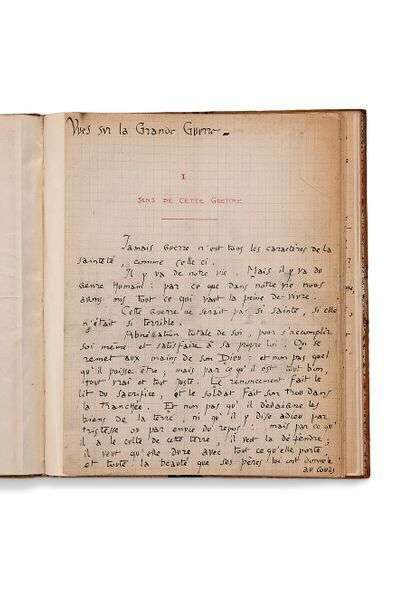 Vues sur la Grande Guerre _
I
SENS DE CETTE GUERRE
Jamais Guerre n'eut tous les caractères de la
sainteté, comme celle ci.
Il y va de notre vie. Mais il y va du
Genre Humain : par ce que dans notre vie nous
avons mis tout ce qui vaut la peine de vivre.
Cette Guerre ne serait pas si sainte, si elle
n'était si terrible.
Abnégation totale de soi, pour s'accomplir
soi même et satisfaire à sa propre loi. On se
remet aux mains de son Dieu : et non pas quel
qu'il puisse être ; mais par ce qu'il est tout bon,
tout vrai et tout juste. Le renoncement fait le
lit du sacrifice, et le soldat fait son trou dans
la tranchée. Et non pas qu'il dédaigne les
biens de la terre, ni qu'il y dise adieu par
tristesse ou par envie du repos ; mais par ce qu'
il a le culte de cette terre, il veut la défendre ;
il veut qu'elle dure avec tout ce qu'elle porte,
et toute la beauté que ses pères lui ont donnée
au cours